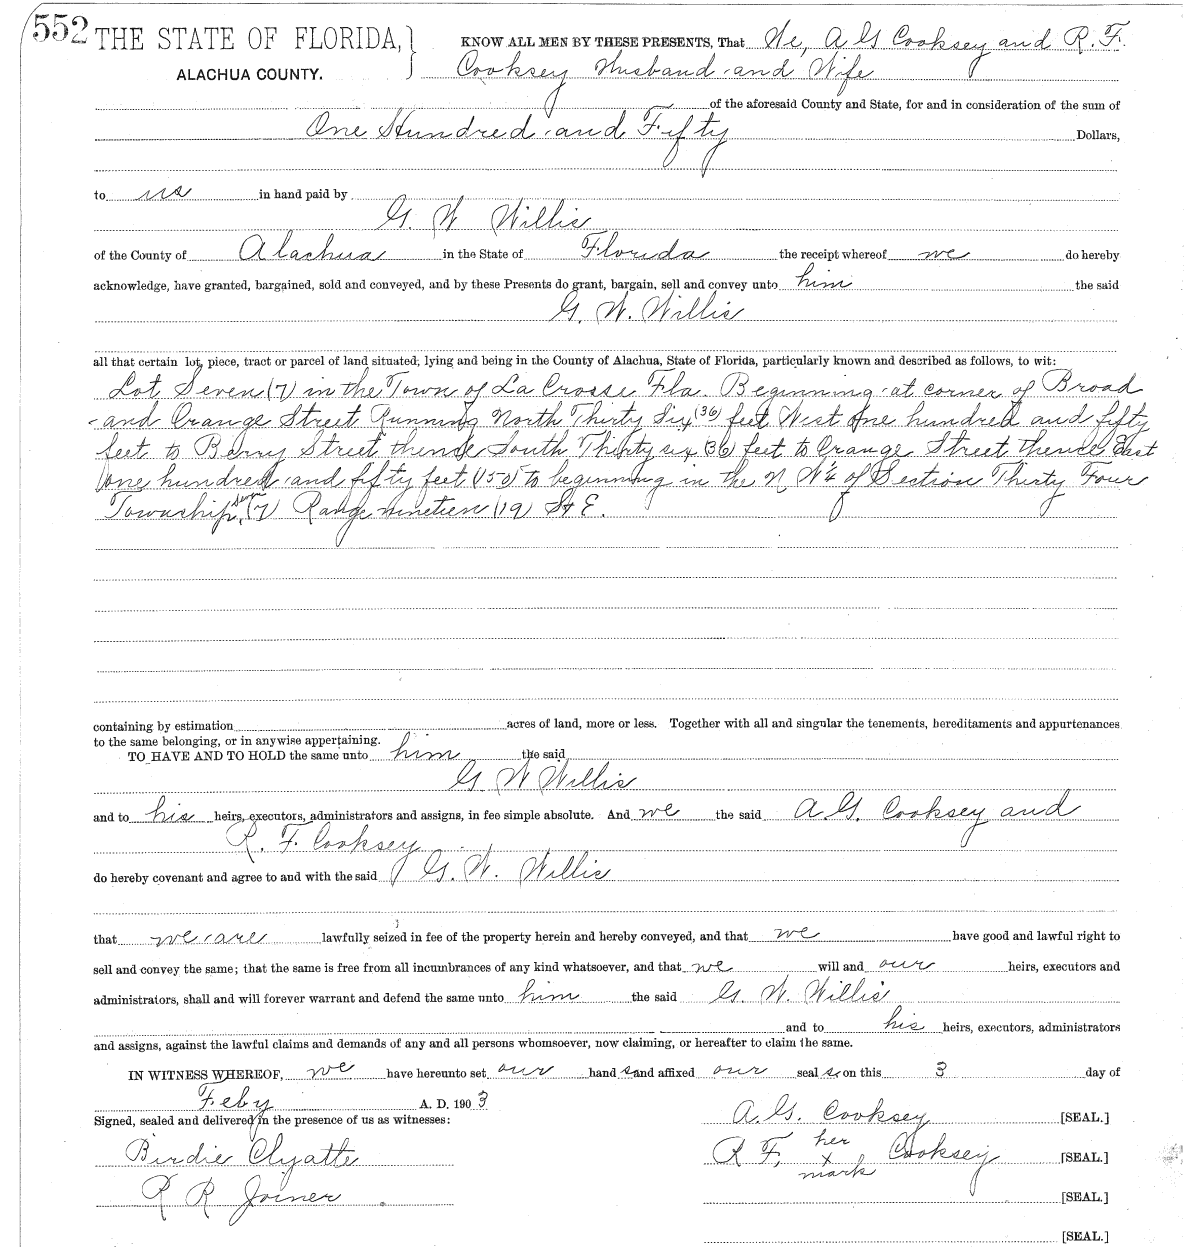 552 THE STATE OF FLORIDA, } KNOW ALL MEN BY THESE PRESENTS, That We, A G Cooksey and R. F.
ALACHUA COUNTY. Cooksey Husband and Wife
of the aforesaid County and State, for and in consideration of the sum of
One Hundred and Fifty Dollars,
to us in hand paid by
G. W Willis
of the County of Alachua in the State of Florida the receipt whereof we do hereby
acknowledge, have granted, bargained, sold and conveyed, and by these Presents do grant, bargain, sell and convey unto him the said
G. W. Willis
all that certain lot, piece, tract or parcel of land situated, lying and being in the County of Alachua, State of Florida, particularly known and described as follows, to wit:
Lot Seven (7) in the Town of La Crosse Fla. Beginning at corner of Broad
and Orange Street Running North Thirty Six (36) feet West One hundred and fifty
feet to Berry Street thence South Thirty six (36) feet to Orange Street thence East
one hundred and fifty feet (150) to beginning in the N W ¼ of Section Thirty Four
Township seven (7) Range nineteen (19) S & E.
containing by estimation acres of land, more or less. Together with all and singular the tenements, hereditaments and appurtenances
to the same belonging, or in anywise appertaining.
TO HAVE AND TO HOLD the same unto him the said
G W Willis
and to his heirs, executors, administrators and assigns, in fee simple absolute. And we the said A. G. Cooksey and
R. F. Cooksey
do hereby covenant and agree to and with the said G. W. Willis
that we are lawfully seized in fee of the property herein and hereby conveyed, and that we have good and lawful right to
sell and convey the same; that the same is free from all incumbrances of any kind whatsoever, and that we will and our heirs, executors and
administrators, shall and will forever warrant and defend the same unto him the said G. W. Willis
and to his heirs, executors, administrators
and assigns, against the lawful claims and demands of any and all persons whomsoever, now claiming, or hereafter to claim the same.
IN WITNESS WHEREOF, we have hereunto set our hand s and affixed our seal s on this 3 day of
Feby A. D. 190 3
Signed, sealed and delivered in the presence of us as witnesses: A. G. Cooksey [SEAL.]
Birdie Clyatte R F, her x mark Cooksey [SEAL.]
R R Joiner [SEAL.]
[SEAL.]